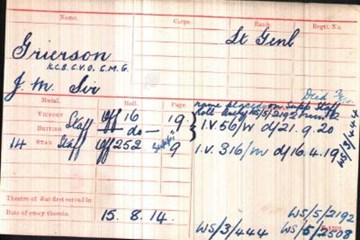 Name. Corps. Rank. Regtl. No.
Grierson Lt Genl
K.C.B. C.V.O. C.M.G.
J. M. Sir
Medal. Roll. Page
name placed on Supp Staff
Roll
VICTORY Staff Off 16 19 I.V. 56/W d/ 21.9.20
BRITISH do
14 STAR Staff Off 252 9 I.V. 316/W d/ 16.4.19
Theatre of War first served in
Date of entry therein. 15. 8. 14. WS/5/2192
WS/3/444 WS/5/2508